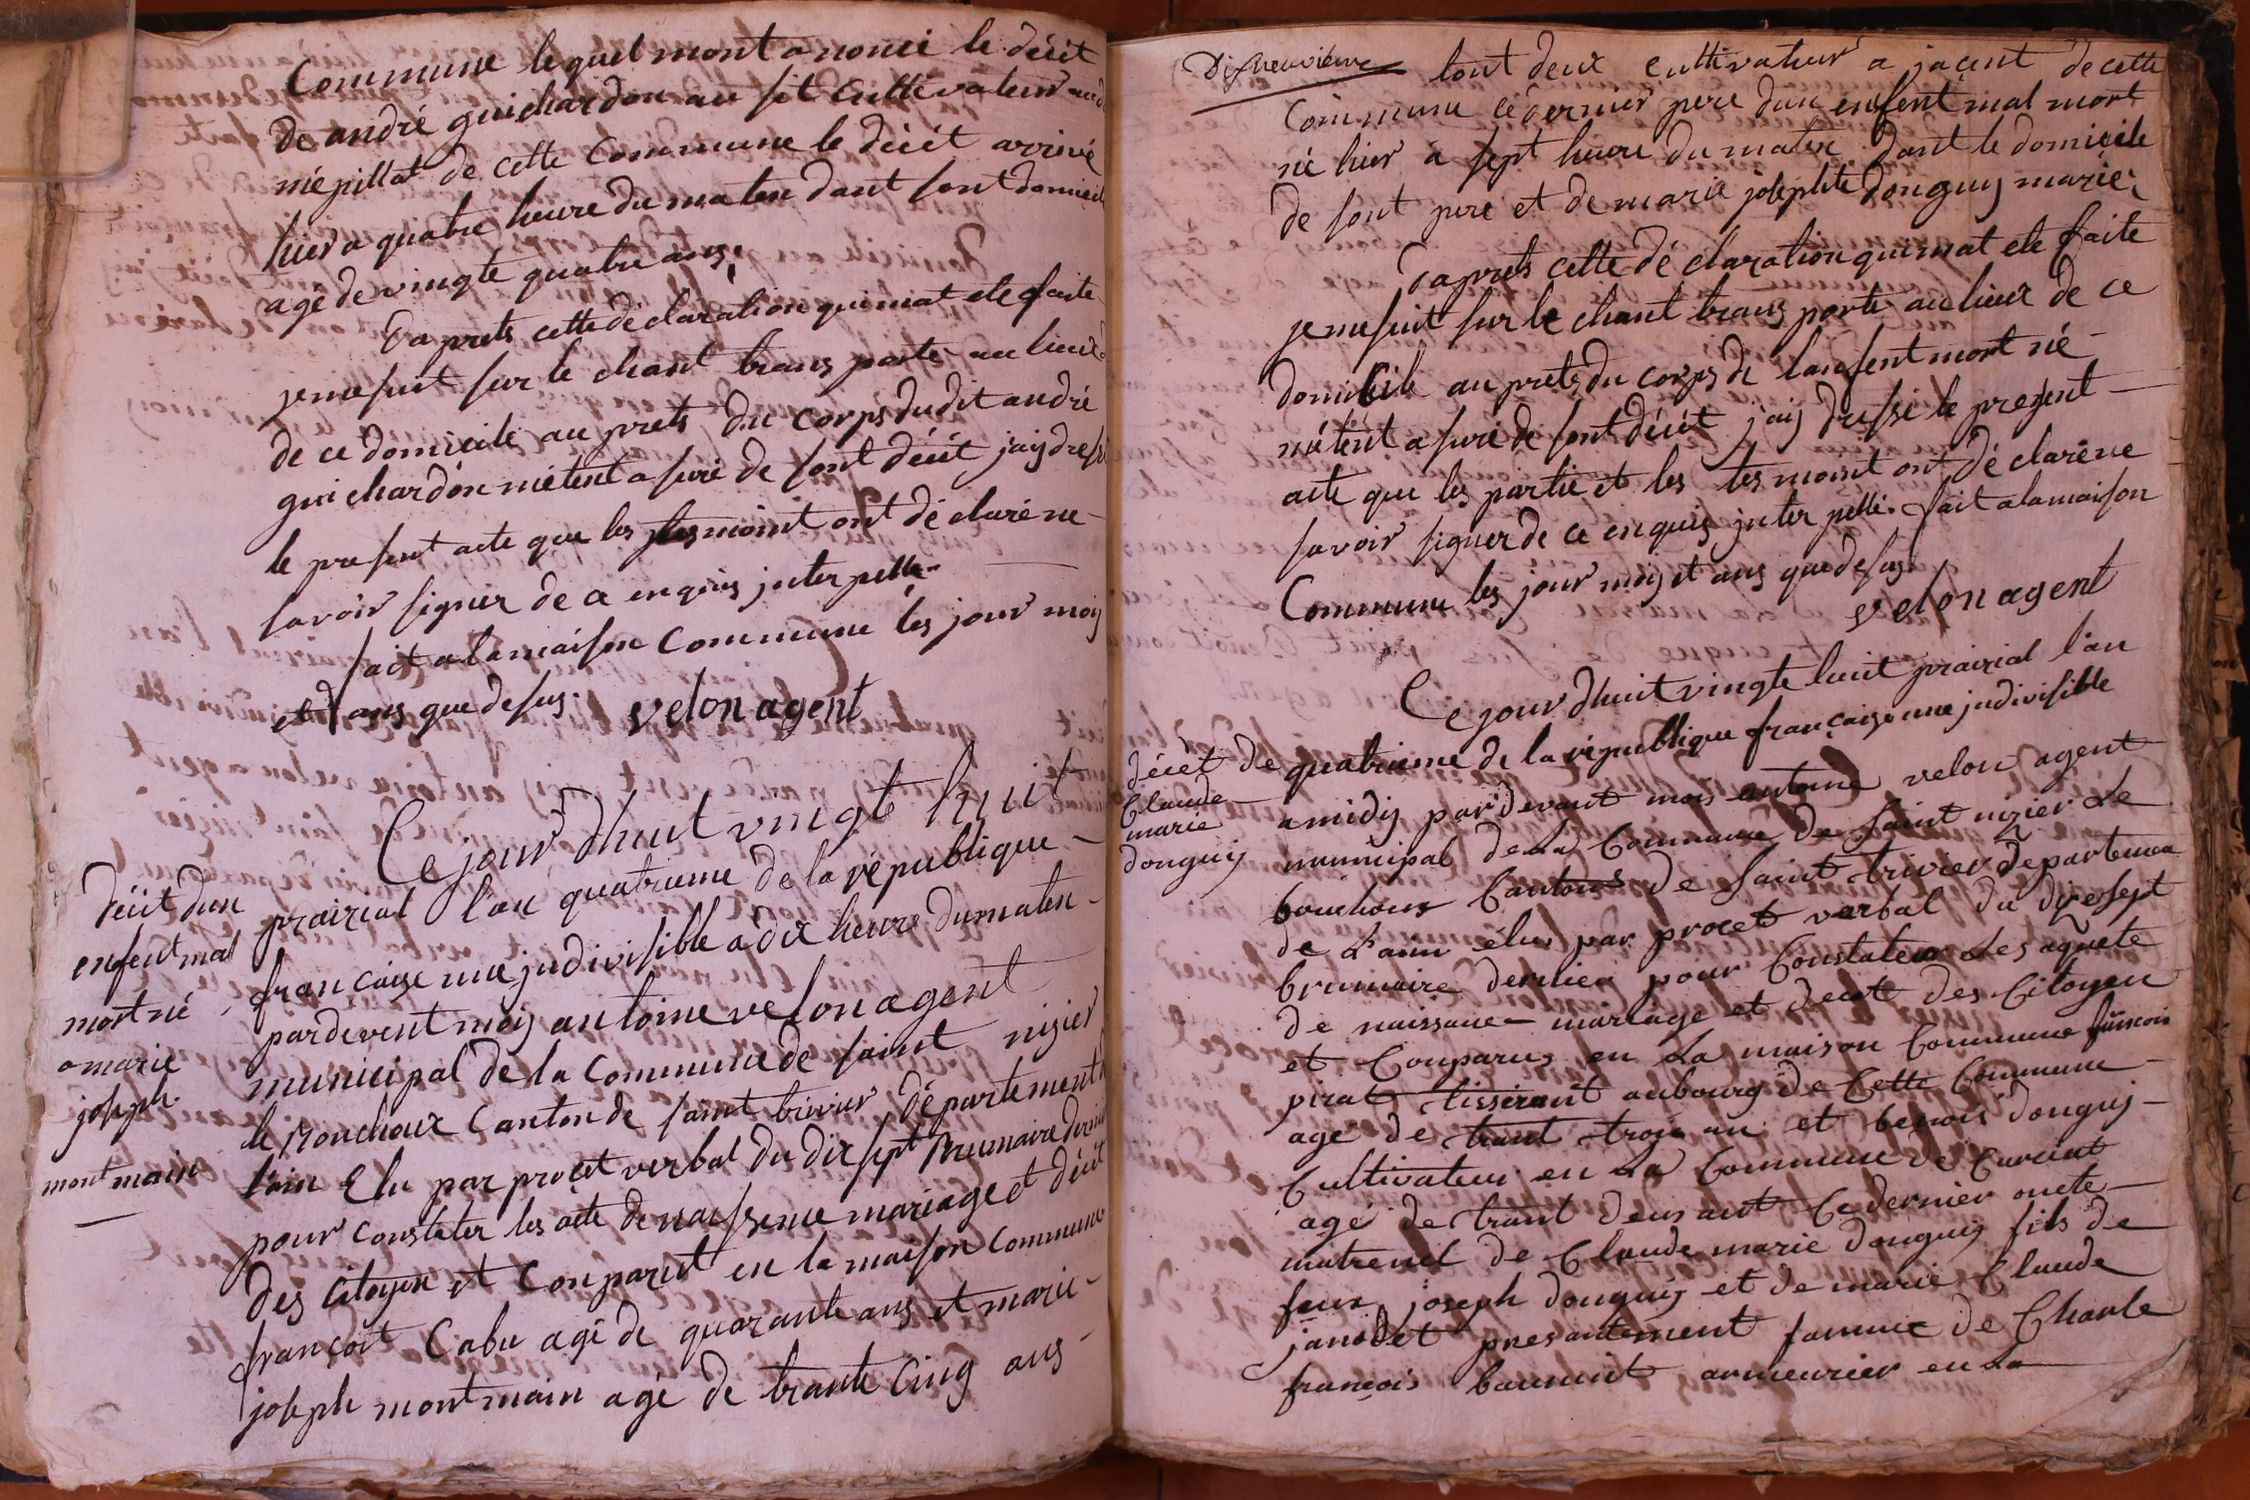 Commune lequel mont anonci le décét
de andré guichardon au fit cultivateur aud
mépillat de cette Commune le décét arrivé
hier a quatre heure du maten dant sont domicil
agé de vingte quatre ans,
Daprets cette déclaration quimat ete faite
jemesuit sur le chant trans porte au lieux
de ce domicile au prets du corps dudit andré
guichardon metent asuré de sont décét jaij dressé
le present acte que les tesmoint ont dé claré ne
savoir signer de ce enquis jnter pellé
fait a lamaison Commune les jour moij
et ans que desus.
velon agent
Ce jour dhuit vingt huit
prairial l'an quatrieme de la république
francaise une jndivisible a dix heure dumaten
pardevent moij antoine velon agent
municipal de la Commune de saint nizier
le Bouchoux Canton de saint trivier département
lain Elu par procet verbal du dix sept brumaire dernie
pour constater les acte de naissence mariage et décét
des citoyen et Conparut en la maison commune
françoit Cabu agé de quarante ans et marie
joseph montmain agé de trante cinq ans
décét dun
enfent mal
mort né
a marie
joseph
montmain
Dixneuvieme
tout deux cultivateur a jacent de cette
Commune cedernier pere dun enfent mal mort
né hier a sept heure du maten dant le domicile
de sont pere et de marie josephte donguy marié
Daprets cette dé claration quimat ete faite
jemesuit sur le chant trans porte au lieux de ce
domicile au prets du corps de lanfent mort né
métent asuré de sont décét jaij dressé le present
acte que les partie et les tesmoint ont dé claré ne
savoir signer de ce enquis jnter pellé. fait alamaison
Commune les jour moij et ans que desus
velon agent
Ce jour dhuit vingte huit prairial l'an
quatrieme de la république française une jndivisible
amidij par devant moi antoine velon agent
municipal de La Commune de saint nizier Le
bouchoux Cantons de saint trivier departemen
de Lain élu par procet verbal du dixesept
brumaire dernier pour Constater Les aquete
de naissance mariage et decet des Citoyen
et Conparus en La maison Commune francois
pirat tisserant aubourg de Cette Commune
agé de trant trois an et benois donguij
Cultivateur en La Commune de Curciat
agé de trant deux ant Ce dernier oncle
matrenel de Claude marie donguij fils de
feux joseph donguij et de marie Claude
janodet presantement famme de Charle
françois armeurier en La
décét de
Claude
marie
donguij